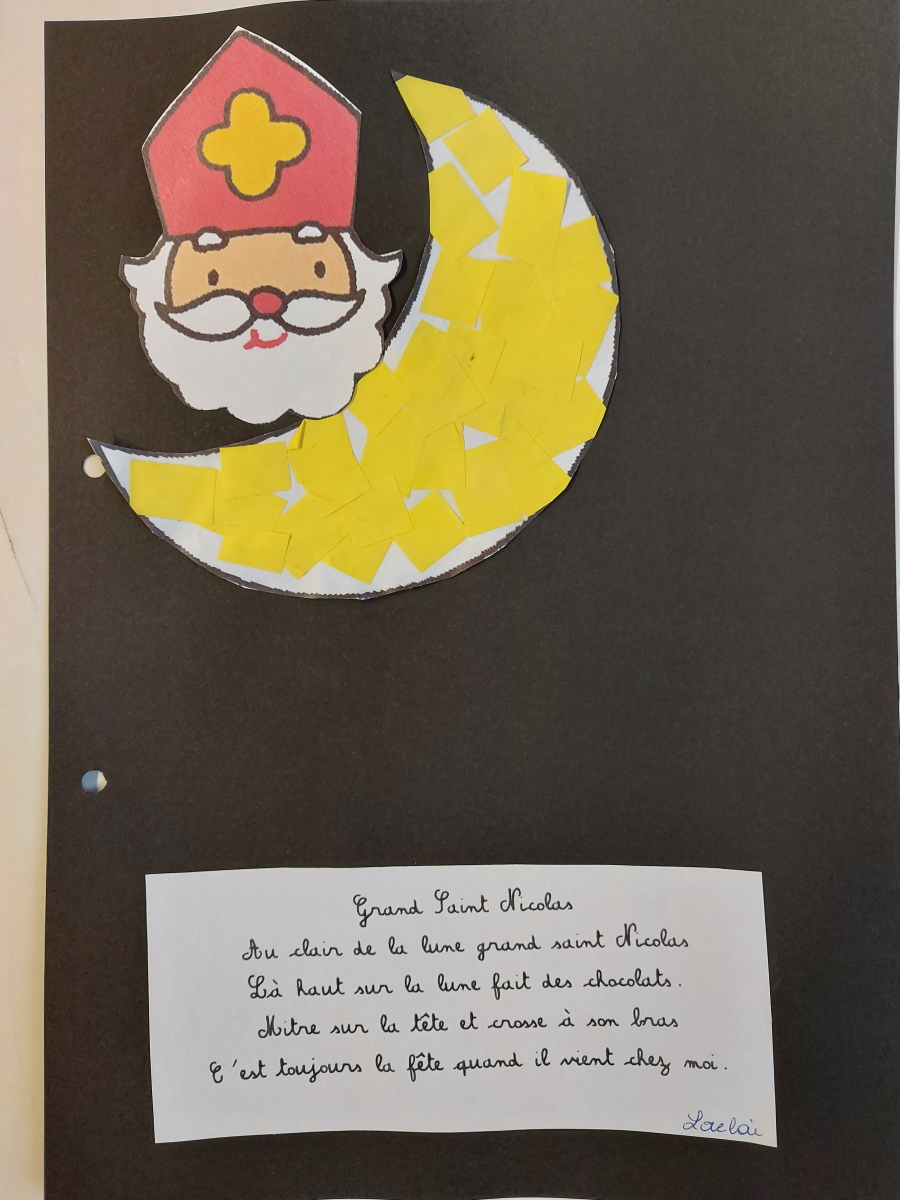 Grand Saint Nicolas
Au clair de la lune grand saint Nicolas
Là haut sur la lune fait des chocolats.
Mitre sur la tête et crosse à son bras
C'est toujours la fête quand il vient chez moi.
Lorelaï